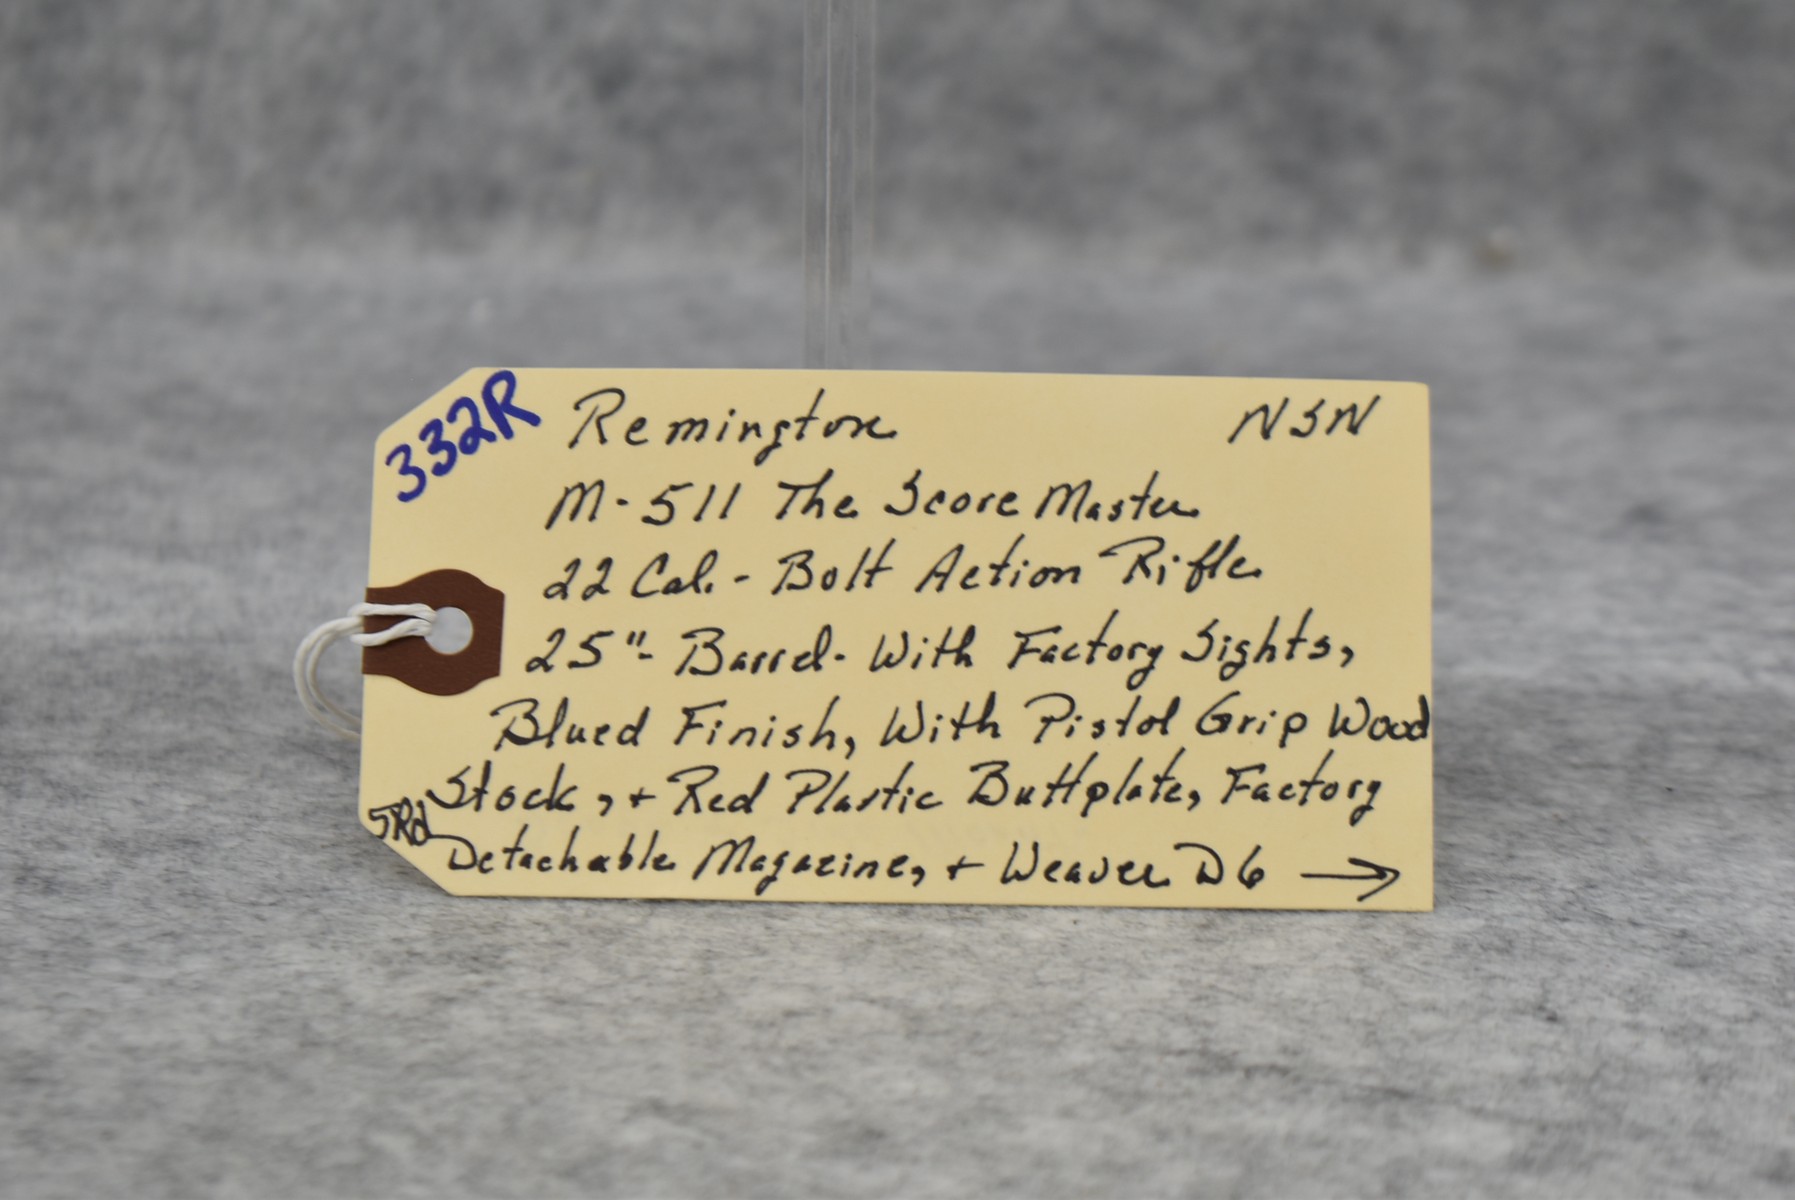 332R
Remington NSN
M-511 The Score Master
22 Cal. - Bolt Action Rifle
25"- Barrel- With Factory Sights,
Blued Finish, With Pistol Grip Wood
Stock, + Red Plastic Buttplate, Factory
5Rd Detachable Magazine, + Weaver D6 →